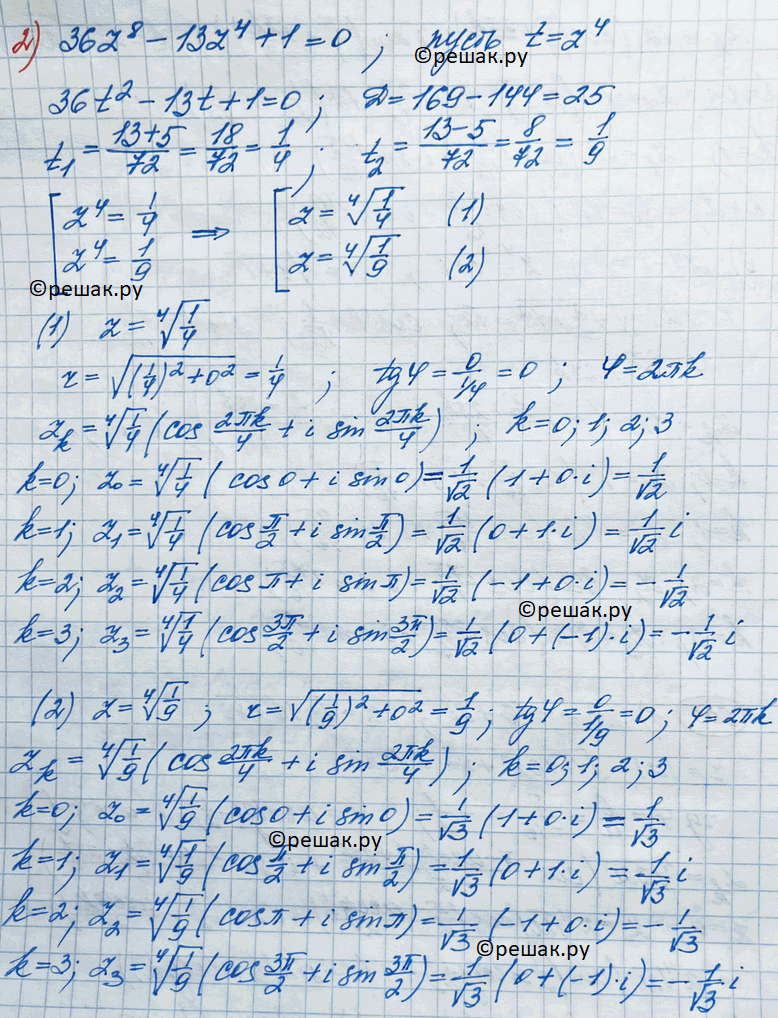 2) 36z⁸ − 13z⁴ + 1 = 0 ; пусть t = z⁴
©решак.ру
36t² − 13t + 1 = 0 ; D = 169 − 144 = 25
t₁ = (13+5)/72 = 18/72 = 1/4 ; t₂ = (13−5)/72 = 8/72 = 1/9
[ z⁴ = 1/4 ⇒ [ z = ⁴√(1/4) (1)
[ z⁴ = 1/9 [ z = ⁴√(1/9) (2)
©решак.ру
(1) z = ⁴√(1/4)
r = √((1/4)² + 0²) = 1/4 ; tgφ = 0/(1/4) = 0 ; φ = 2πk
z_k = ⁴√(1/4) (cos 2πk/4 + i sin 2πk/4) ; k = 0; 1; 2; 3
k=0; z₀ = ⁴√(1/4) (cos 0 + i sin 0) = 1/√2 (1 + 0·i) = 1/√2
k=1; z₁ = ⁴√(1/4) (cos π/2 + i sin π/2) = 1/√2 (0 + 1·i) = 1/√2 i
k=2; z₂ = ⁴√(1/4) (cos π + i sin π) = 1/√2 (−1 + 0·i) = −1/√2
©решак.ру
k=3; z₃ = ⁴√(1/4) (cos 3π/2 + i sin 3π/2) = 1/√2 (0 + (−1)·i) = −1/√2 i
(2) z = ⁴√(1/9) ; r = √((1/9)² + 0²) = 1/9 ; tgφ = 0/(1/9) = 0 ; φ = 2πk
z_k = ⁴√(1/9) (cos 2πk/4 + i sin 2πk/4) ; k = 0; 1; 2; 3
k=0; z₀ = ⁴√(1/9) (cos 0 + i sin 0) = 1/√3 (1 + 0·i) = 1/√3
©решак.ру
k=1; z₁ = ⁴√(1/9) (cos π/2 + i sin π/2) = 1/√3 (0 + 1·i) = 1/√3 i
k=2; z₂ = ⁴√(1/9) (cos π + i sin π) = 1/√3 (−1 + 0·i) = −1/√3
©решак.ру
k=3; z₃ = ⁴√(1/9) (cos 3π/2 + i sin 3π/2) = 1/√3 (0 + (−1)·i) = −1/√3 i